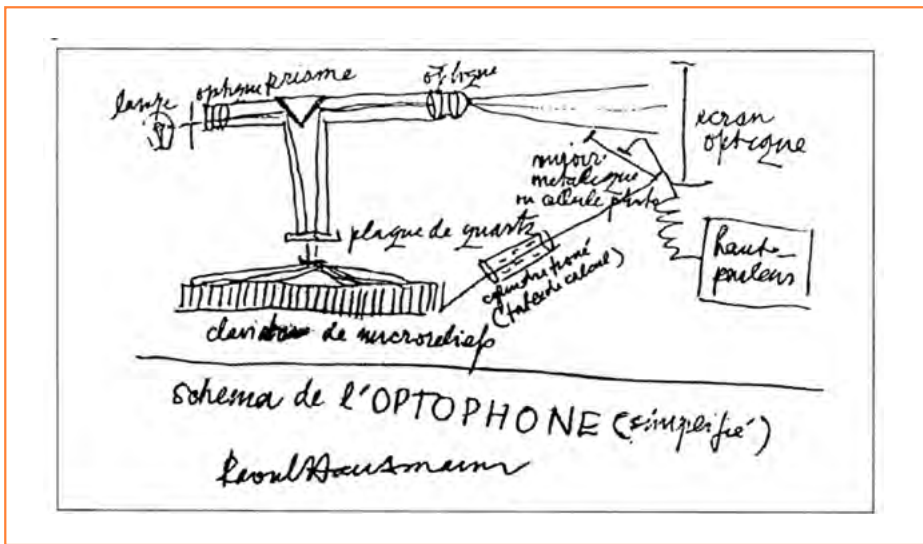 lampe
optique prisme
optique
ecran
optique
miroir
metalique
ou cellule photo
plaque de quartz
cylindre troné
(table de calcul)
haut-
parleurs
de microreliefs
schema de l'OPTOPHONE (simplifié)
Raoul Hausmann